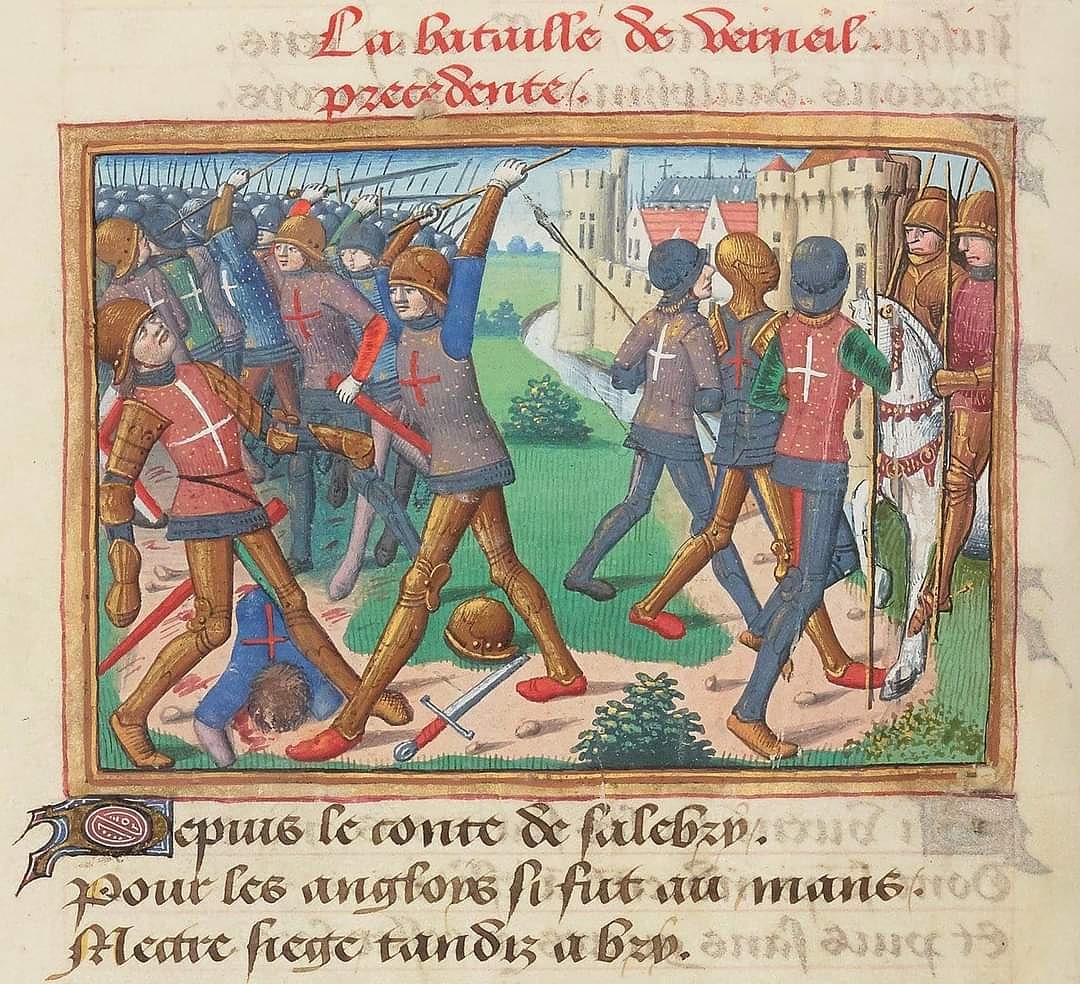 La bataille de Verneil.
precedente.
Depuis le conte de salebry.
Pour les angloys si fut au mans.
Mectre siege tandiz a bry.